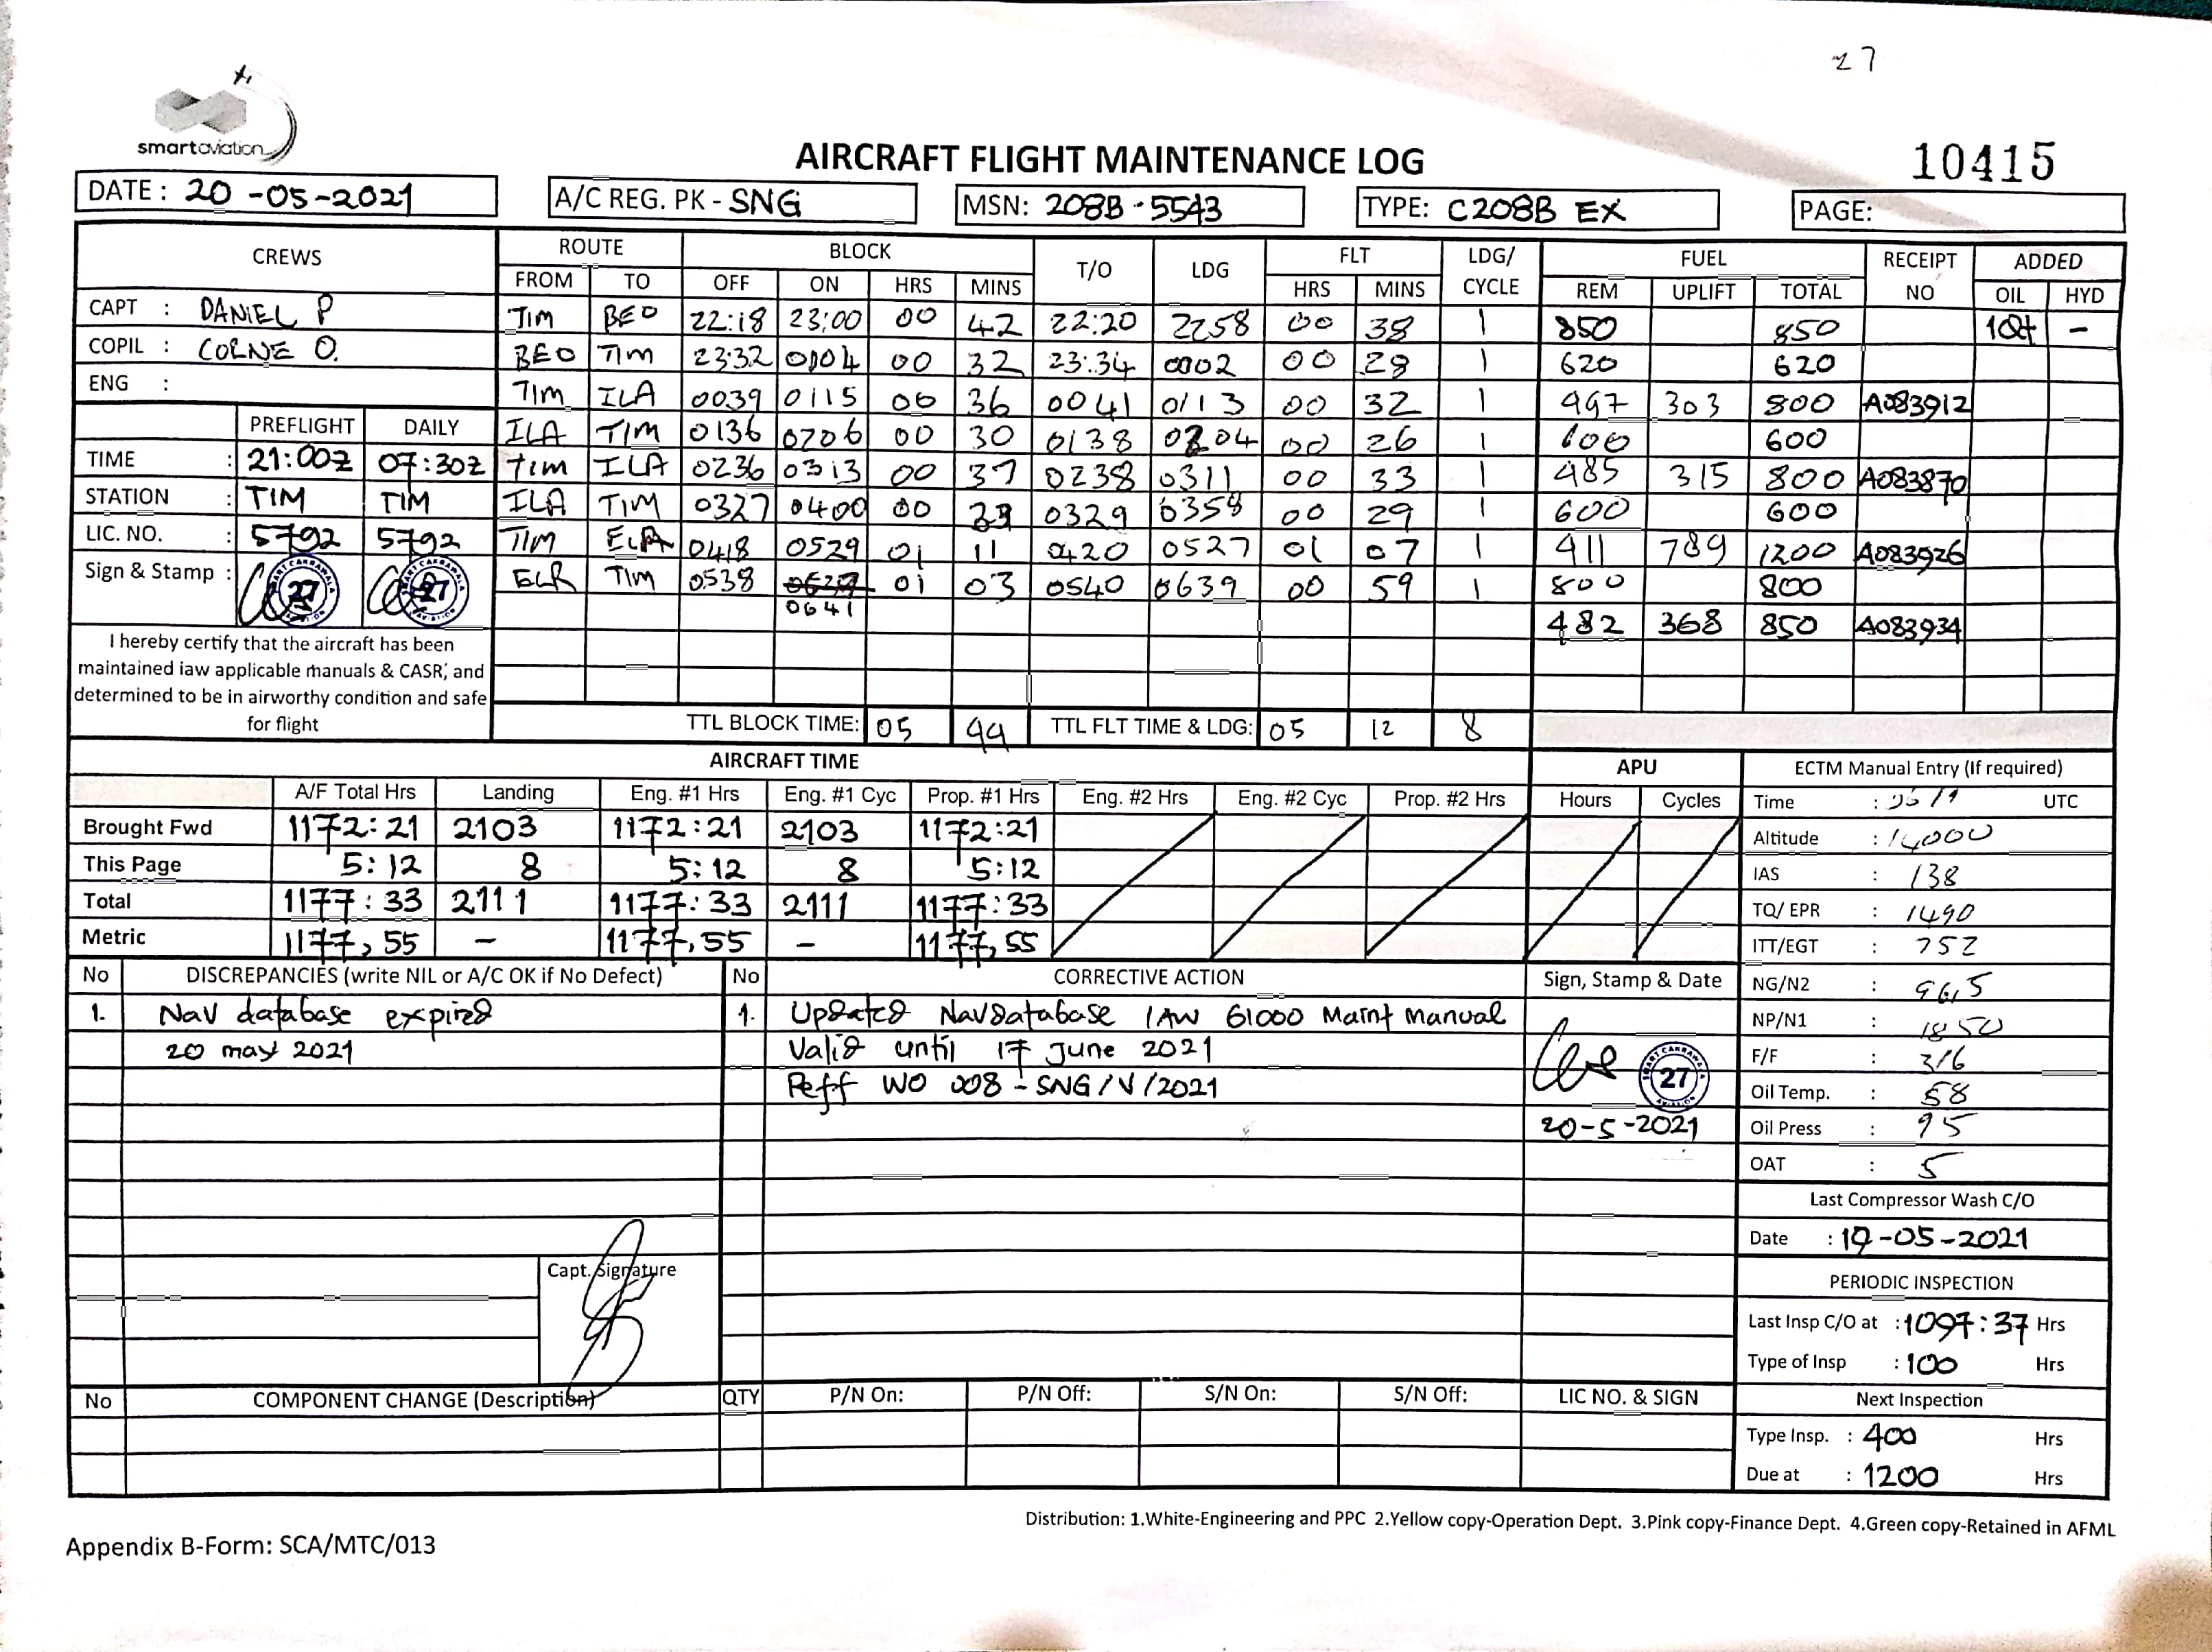 27
smartaviation
AIRCRAFT FLIGHT MAINTENANCE LOG
10415
DATE : 20-05-2021 A/C REG. PK - SNG MSN: 208B-5543 TYPE: C208B EX PAGE:
CREWS ROUTE BLOCK T/O LDG FLT LDG/ CYCLE FUEL RECEIPT NO ADDED
FROM TO OFF ON HRS MINS HRS MINS REM UPLIFT TOTAL OIL HYD
CAPT : DANIEL P
COPIL : CORNE O.
ENG :
TIM BEO 22:18 23:00 00 42 22:20 2258 00 38 1 850 850 1Qt -
BEO TIM 23:32 0004 00 32 23:34 0002 00 28 1 620 620
TIM ILA 0039 0115 00 36 0041 0113 00 32 1 497 303 800 A083912
ILA TIM 0136 0206 00 30 0138 0204 00 26 1 600 600
TIM ILA 0236 0313 00 37 0238 0311 00 33 1 485 315 800 A083870
ILA TIM 0327 0400 00 33 0329 0358 00 29 1 600 600
TIM ELR 0418 0529 01 11 0420 0527 01 07 1 411 789 1200 A083926
ELR TIM 0538 0641 01 03 0540 0639 00 59 1 800 800
482 368 850 A083934
PREFLIGHT DAILY
TIME : 21:00Z 07:30Z
STATION : TIM TIM
LIC. NO. : 5792 5792
Sign & Stamp : 27 27
I hereby certify that the aircraft has been
maintained iaw applicable manuals & CASR, and
determined to be in airworthy condition and safe
for flight
TTL BLOCK TIME: 05 44 TTL FLT TIME & LDG: 05 12 8
AIRCRAFT TIME APU
A/F Total Hrs Landing Eng. #1 Hrs Eng. #1 Cyc Prop. #1 Hrs Eng. #2 Hrs Eng. #2 Cyc Prop. #2 Hrs Hours Cycles
Brought Fwd 1172:21 2103 1172:21 2103 1172:21
This Page 5:12 8 5:12 8 5:12
Total 1177:33 2111 1177:33 2111 1177:33
Metric 1177,55 - 1177,55 - 1177,55
ECTM Manual Entry (If required)
Time : UTC
Altitude : 14000
IAS : 138
TQ/ EPR : 1490
ITT/EGT : 752
NG/N2 : 96,5
NP/N1 : 1850
F/F : 316
Oil Temp. : 58
Oil Press : 95
OAT : 5
Last Compressor Wash C/O
Date : 19-05-2021
PERIODIC INSPECTION
Last Insp C/O at : 1097:37 Hrs
Type of Insp : 100 Hrs
Next Inspection
Type Insp. : 400 Hrs
Due at : 1200 Hrs
No DISCREPANCIES (write NIL or A/C OK if No Defect) No CORRECTIVE ACTION Sign, Stamp & Date
1. Nav database expired
20 may 2021
1. Updated Navdatabase IAW G1000 Maint Manual
Valid until 17 June 2021
Reff WO 008 - SNG/V/2021
SMART CAKRAWALA AVIATION 27
20-5-2021
Capt. Signature
No COMPONENT CHANGE (Description) QTY P/N On: P/N Off: S/N On: S/N Off: LIC NO. & SIGN
Distribution: 1.White-Engineering and PPC 2.Yellow copy-Operation Dept. 3.Pink copy-Finance Dept. 4.Green copy-Retained in AFML
Appendix B-Form: SCA/MTC/013